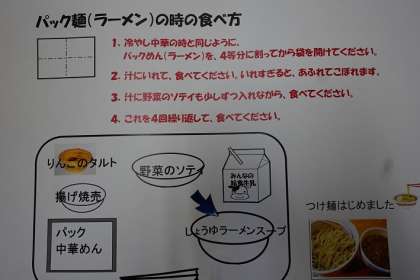 パック麺(ラーメン)の時の食べ方
1. 冷やし中華の時と同じように、
パックめん(ラーメン)を、4等分に割ってから袋を開けてください。
2. 汁にいれて、食べてください。いれすぎると、あふれてこぼれます。
3. 汁に野菜のソテイも少しずつ入れながら、食べてください。
4. これを4回繰り返して、食べてください。
りんごのタルト
野菜のソテイ
みんなの
給食牛乳
揚げ焼売
しょうゆラーメンスープ
つけ麺はじめました
パック
中華めん